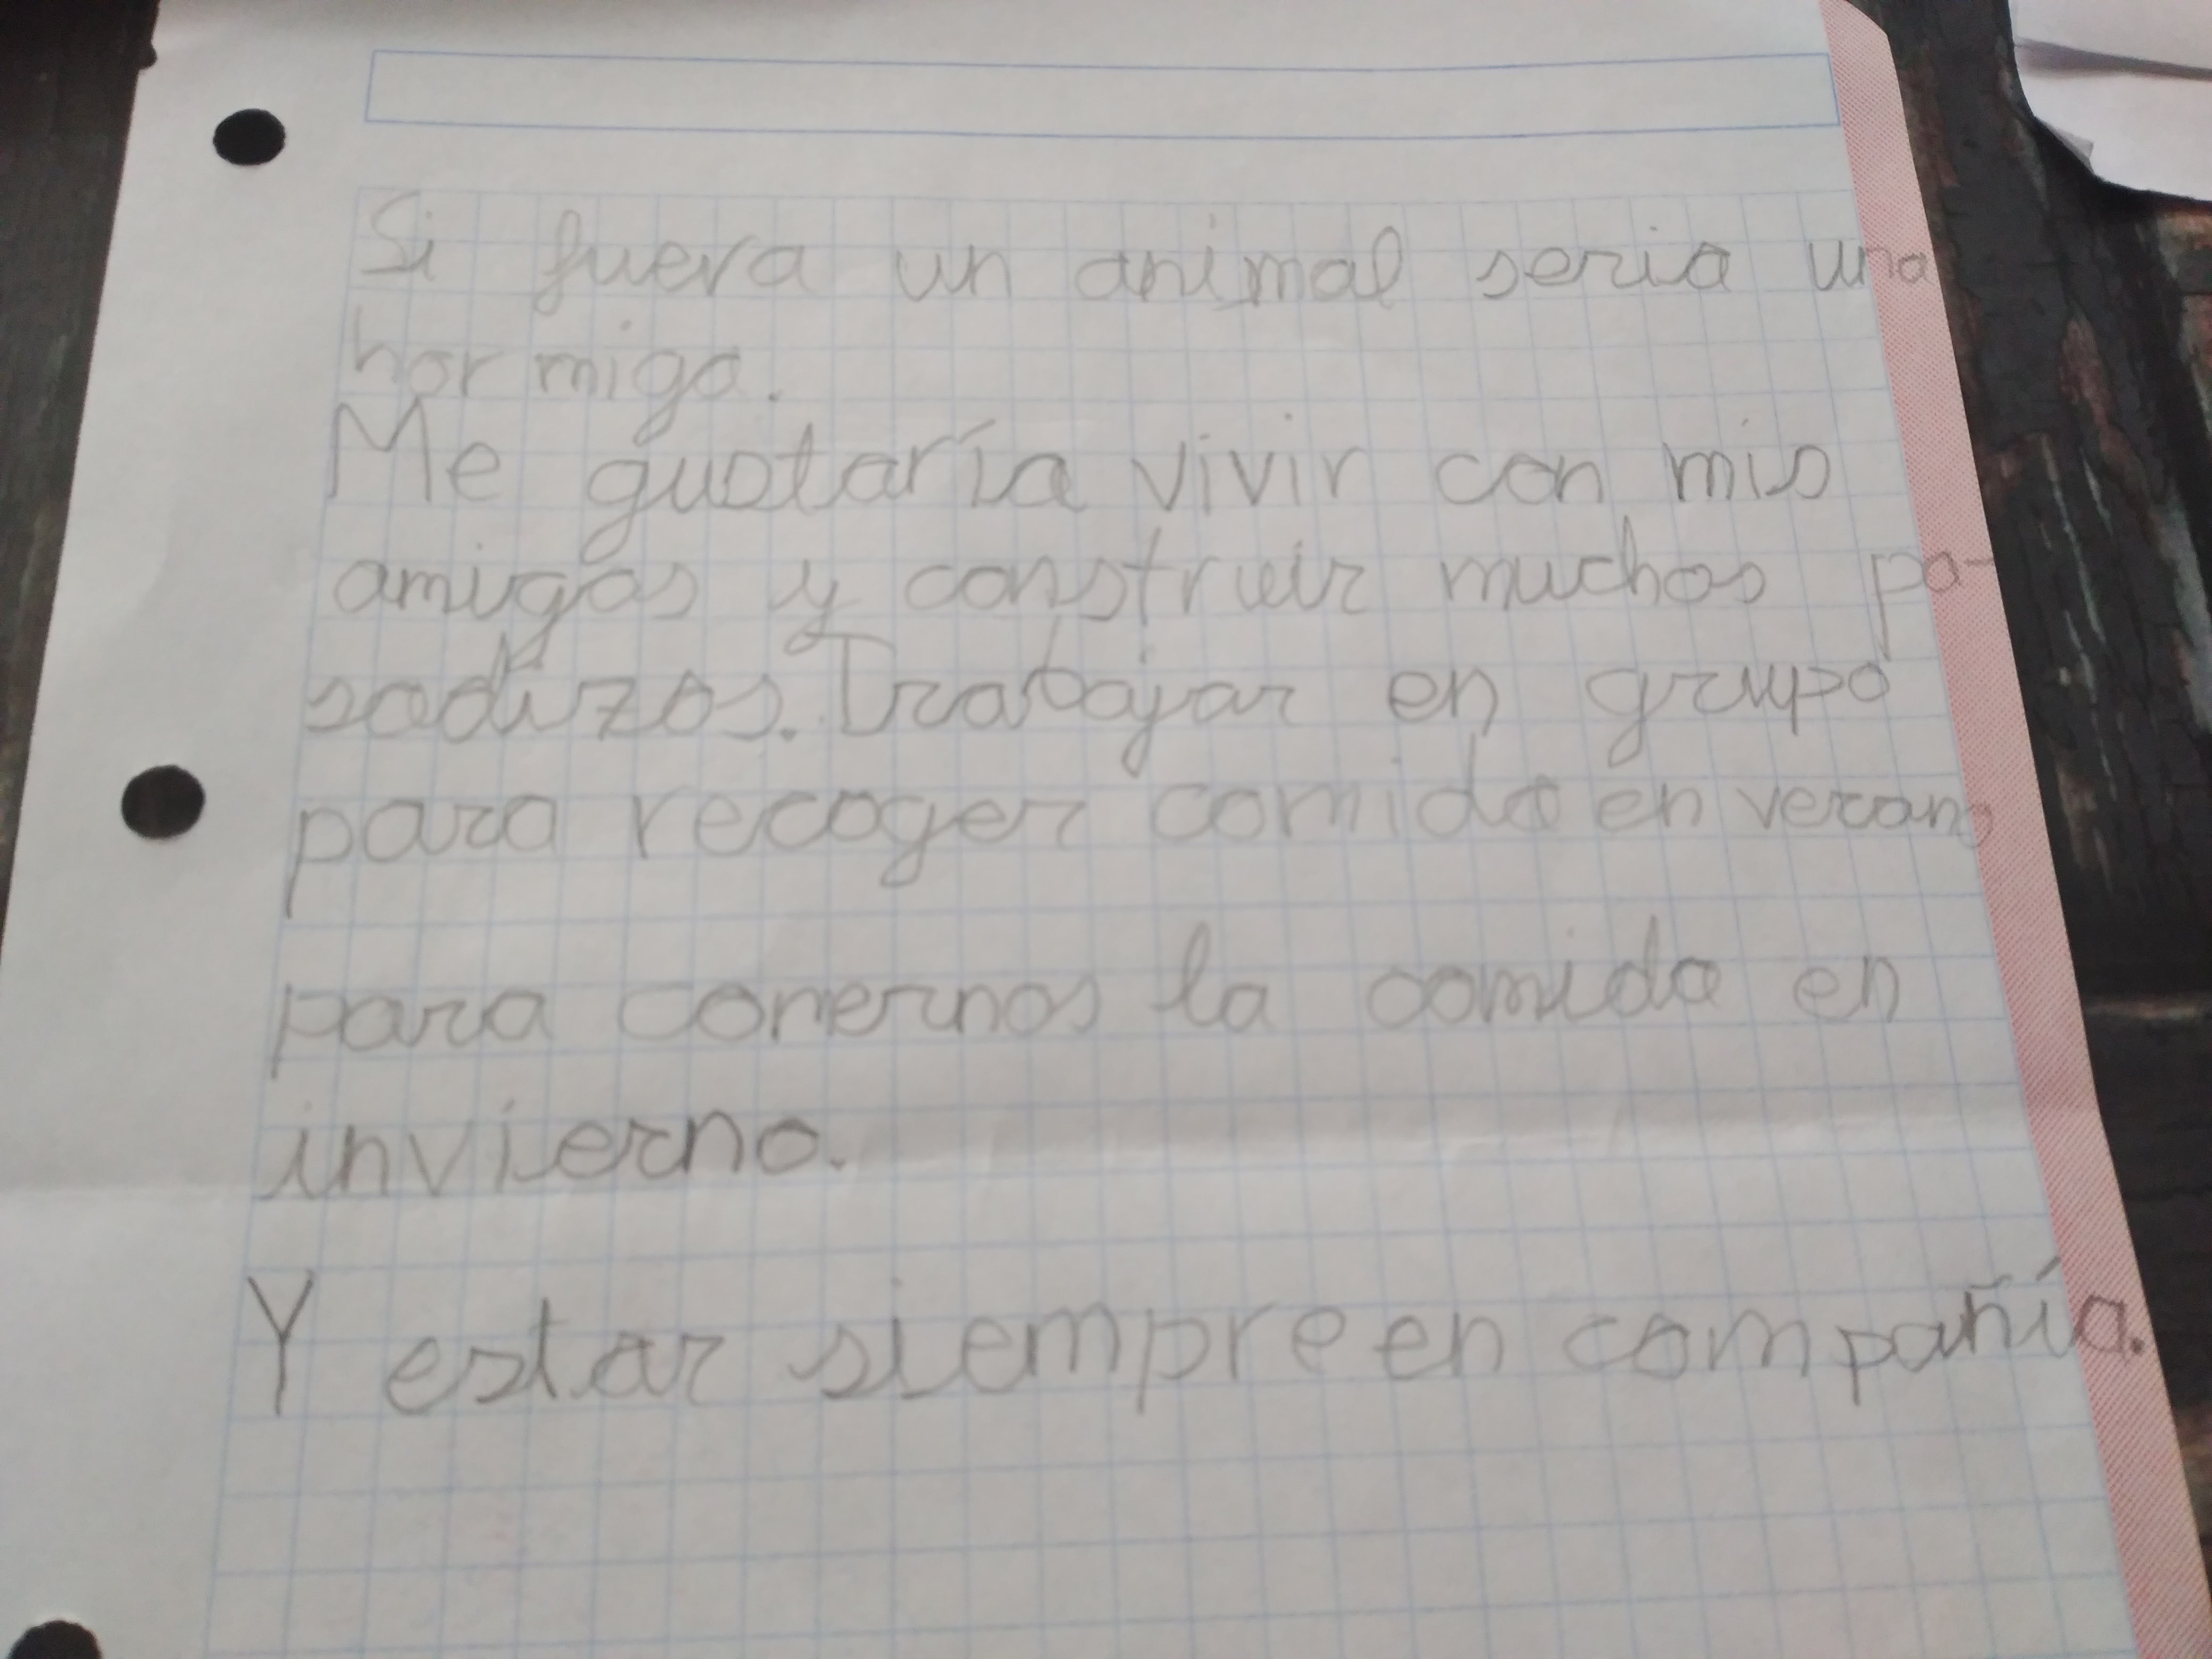 Si fuera un animal seria una
hormiga.
Me gustaría vivir con mis
amigas y construir muchos pa-
sadizos. Trabajar en grupo
para recoger comida en verano
para comernos la comida en
invierno.
Y estar siempre en compañía.